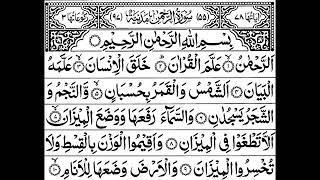 اٰیاتها ۷۸ (۵۵) سُوْرَةُ الرَّحْمٰنِ مَدَنِیَّةٌ (۹۷) رکوعاتها ۳
بِسْمِ اللّٰهِ الرَّحْمٰنِ الرَّحِیْمِ
اَلرَّحْمٰنُ ۙ۱ عَلَّمَ الْقُرْاٰنَ ؕ۲ خَلَقَ الْاِنْسَانَ ۙ۳ عَلَّمَهُ
الْبَیَانَ ۴ اَلشَّمْسُ وَ الْقَمَرُ بِحُسْبَانٍ ۵ وَّ النَّجْمُ وَ
الشَّجَرُ یَسْجُدٰنِ ۶ وَ السَّمَآءَ رَفَعَهَا وَ وَضَعَ الْمِیْزَانَ ۷
اَلَّا تَطْغَوْا فِی الْمِیْزَانِ ۸ وَ اَقِیْمُوا الْوَزْنَ بِالْقِسْطِ وَ لَا
تُخْسِرُوا الْمِیْزَانَ ۹ وَ الْاَرْضَ وَضَعَهَا لِلْاَنَامِ ۱۰